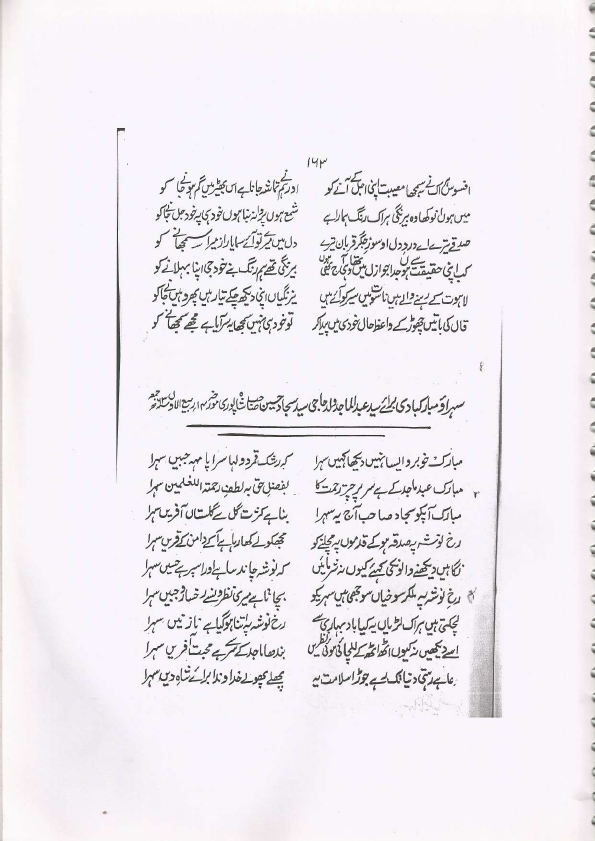 ۱۶۳
افسوس اک نے سمجھا مصیبت اپنی اجل کے آنے کو اور ہم نے تماشہ جانا ہے اس بھیڑ میں گم ہو جانے کو
میں ہوں انوکھا وہ بیرنگی ہر اک رنگ ہمارا ہے شمع ہوں پروانہ بنا ہوں خود ہی پہ خود جل جانے کو
صدقے تیرے اے درد دل او سوز جگر قربان تیرے دل میں میرے تو آئے سمایا راز میرا سمجھانے کو
کب اپنی حقیقت سے ہوں جدا جو ازل میں تھا وہی آج بھی ہوں بیرنگی تھے ہم رنگ بنے خود جی اپنا بہلانے کو
لاہوت کے رہنے والے ہیں ناسوت میں سیر کو آئے ہیں نیرنگیاں اپنی دیکھ چکے تیار ہیں پھر وہیں جانے کو
قال کی باتیں چھوڑ کے واعظ حال خودی میں پیدا کر تو خود ہی نہیں سمجھا یہ سر آیا ہے مجھے سمجھانے کو
سہرا و مبارکبادی برائے سید عبدالماجد ولد حاجی سید سجاد حسین صاحب پوری مورخہ ۱۴ ربیع الاول
مبارک خوبرو ایسا نہیں دیکھا کہیں سہرا کہ رشک قمر دولہا سراپا مہ جبیں سہرا
مبارک عبد ماجد کے ہے سر پر چتر رحمت کا بفضل حق بہ لطف رحمتہ اللعلمین سہرا
مبارک آپکو سجاد صاحب آج یہ سہرا بنا ہے کثرت گل سے گلستاں آفریں سہرا
رخ نوشہ پہ صدقہ ہو کے قدموں پہ مچلنے کو مجھکولے کھا رہا ہے آ کے دامن کے قریں سہرا
نگاہیں دیکھنے والونکی کہئے کیوں نہ شرمائیں کہ نوشہ چاند سا ہے اور اسپر ہے حسیں سہرا
رخ نوشہ پہ ملکر سوخیاں سوجھی ہیں سہریکو بچانا ہے میری نظرو نسے رخسار و جبیں سہرا
لچکتی ہیں ہر اک لڑیاں یہ کیا باد بہاری سے رخ نوشہ پہ اتنا ہو گیا ہے نازنیں سہرا
اسے دیکھیں نہ کیوں اٹھ اٹھ کے للچائی ہوئی نظریں بندھا ماجد کے سر ہے محبت آفریں سہرا
رہتی دنیا تک ہے جوڑا سلامت یہ پھلے پھولے خداوندا برائے شاہ دیں سہرا